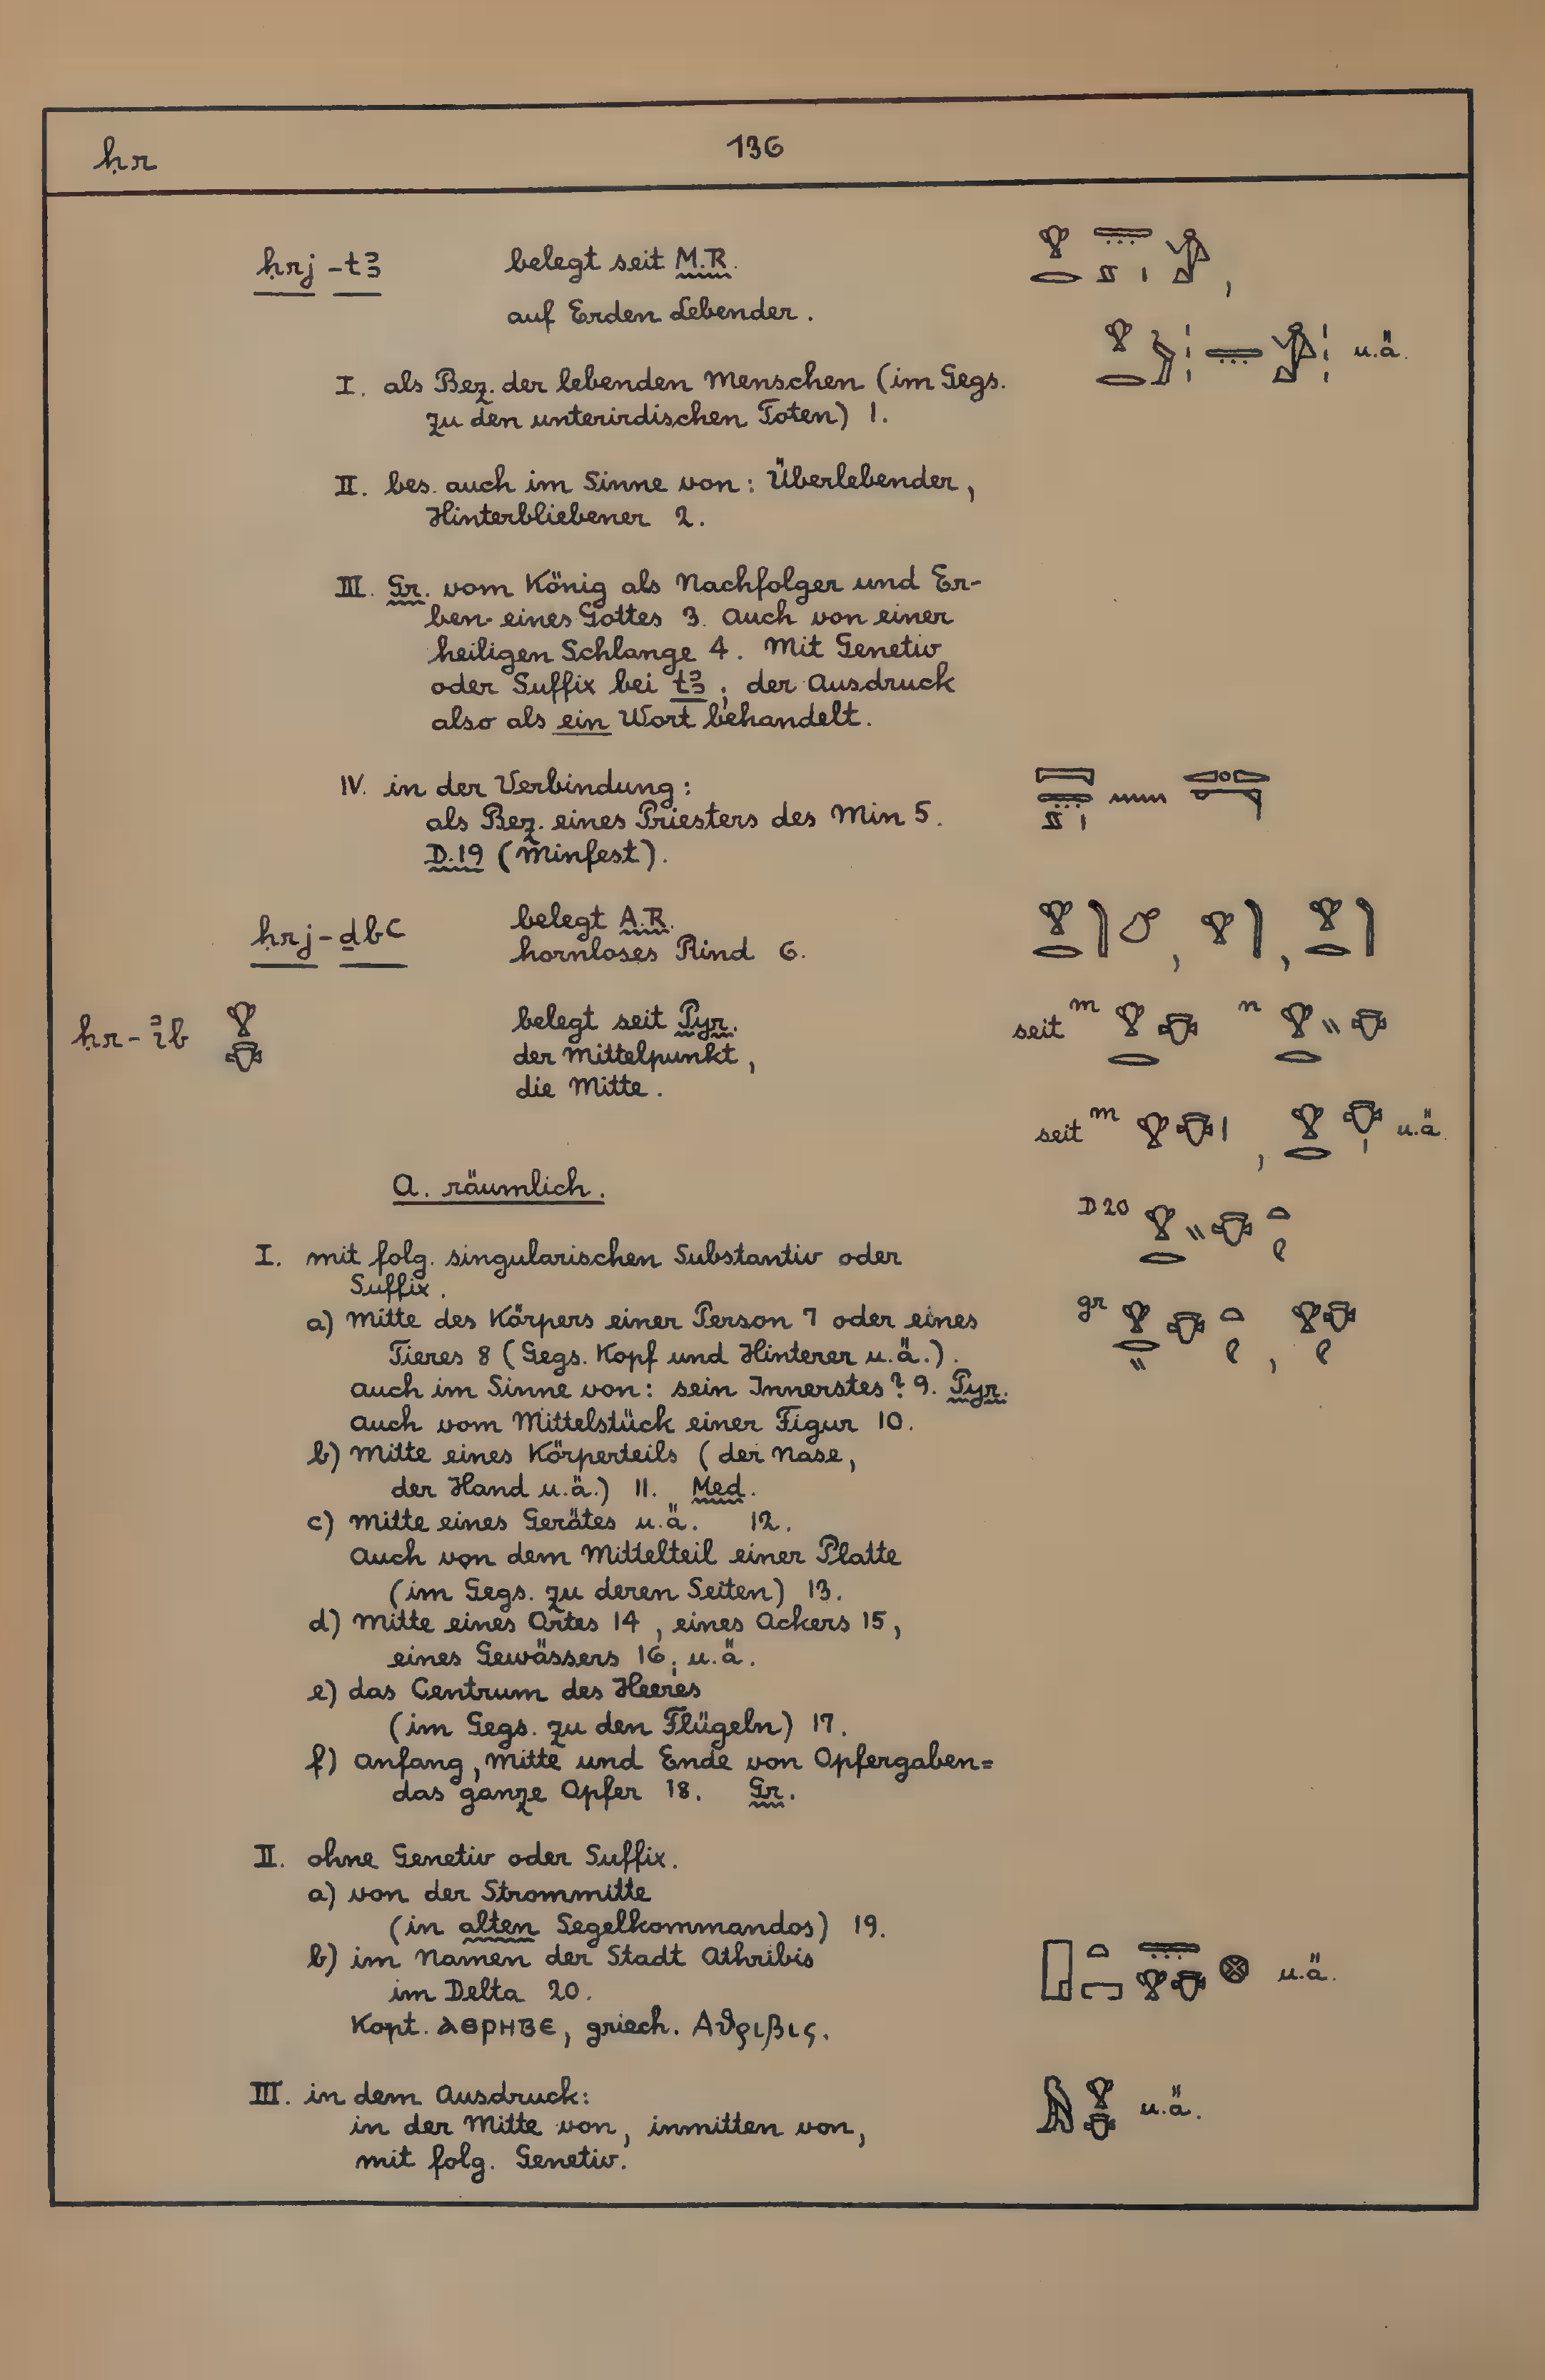 ḥr 136
ḥrj-tꜣ belegt seit M.R.
auf Erden Lebender. ,
I. als Bez. der lebenden Menschen (im Gegs. u.ä.
zu den unterirdischen Toten) 1.
II. bes. auch im Sinne von: Überlebender,
Hinterbliebener 2.
III. Gr. vom König als Nachfolger und Er-
ben eines Gottes 3. Auch von einer
heiligen Schlange 4. Mit Genetiv
oder Suffix bei tꜣ; der Ausdruck
also als ein Wort behandelt.
IV. in der Verbindung:
als Bez. eines Priesters des Min 5.
D.19 (Minfest).
ḥrj-ḏbꜥ belegt A.R.
hornloses Rind 6. , ,
ḥr-ꞽb belegt seit Pyr. seit m n
der Mittelpunkt,
die Mitte.
seit m , u.ä.
A. räumlich.
D 20
I. mit folg. singularischen Substantiv oder
Suffix.
a) Mitte des Körpers einer Person 7 oder eines gr ,
Tieres 8 (Gegs. Kopf und Hinterer u.ä.).
auch im Sinne von: sein Innerstes? 9. Pyr.
auch vom Mittelstück einer Figur 10.
b) Mitte eines Körperteils (der Nase,
der Hand u.ä.) 11. Med.
c) Mitte eines Gerätes u.ä. 12.
Auch von dem Mittelteil einer Platte
(im Gegs. zu deren Seiten) 13.
d) Mitte eines Ortes 14, eines Ackers 15,
eines Gewässers 16; u.ä.
e) das Centrum des Heeres
(im Gegs. zu den Flügeln) 17.
f) Anfang, Mitte und Ende von Opfergaben=
das ganze Opfer 18. Gr.
II. ohne Genetiv oder Suffix.
a) von der Strommitte
(in alten Segelkommandos) 19.
b) im Namen der Stadt Athribis u.ä.
im Delta 20.
Kopt. ⲁⲑⲣⲏⲃⲉ, griech. Αϑριβις.
III. in dem Ausdruck: u.ä.
in der Mitte von, inmitten von,
mit folg. Genetiv.